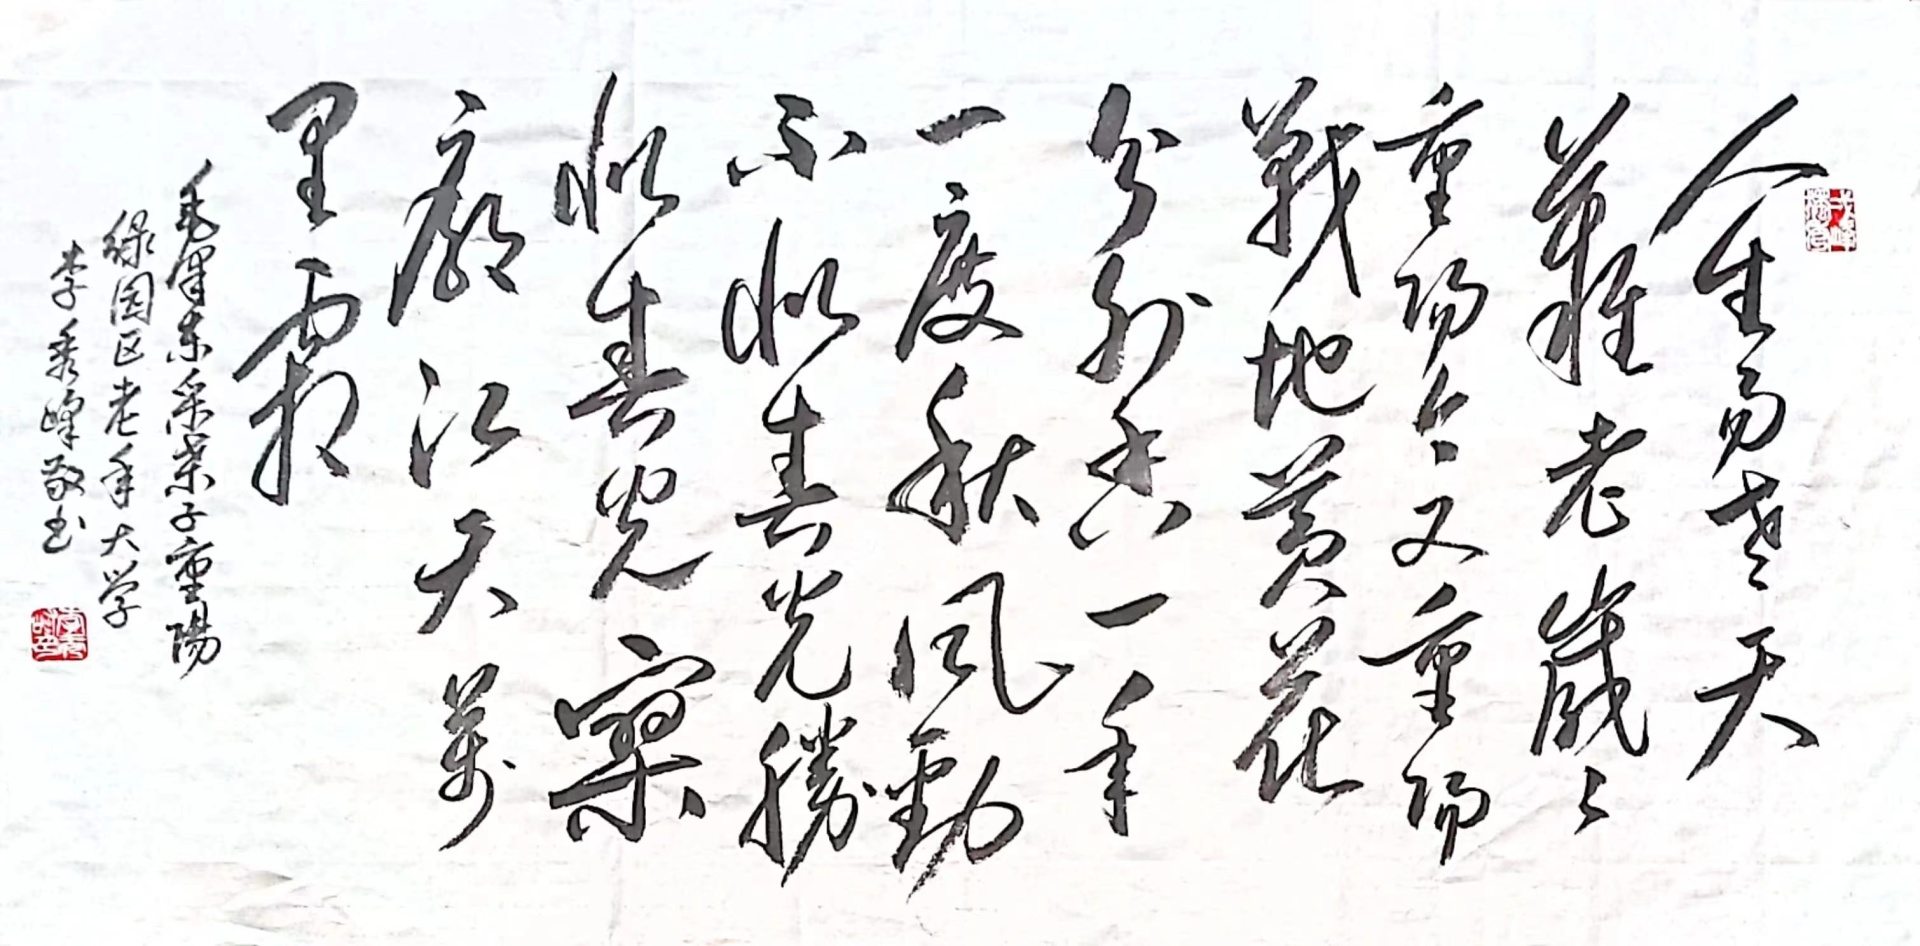 人生易老天
難老歲々
重陽今又重陽
戰地黄花
分外香一年
一度秋风勁
不似春光勝
似春光寥
廓江天萬
里霜
毛泽东采桑子重陽
绿园区老年大学
李秀峰敬书